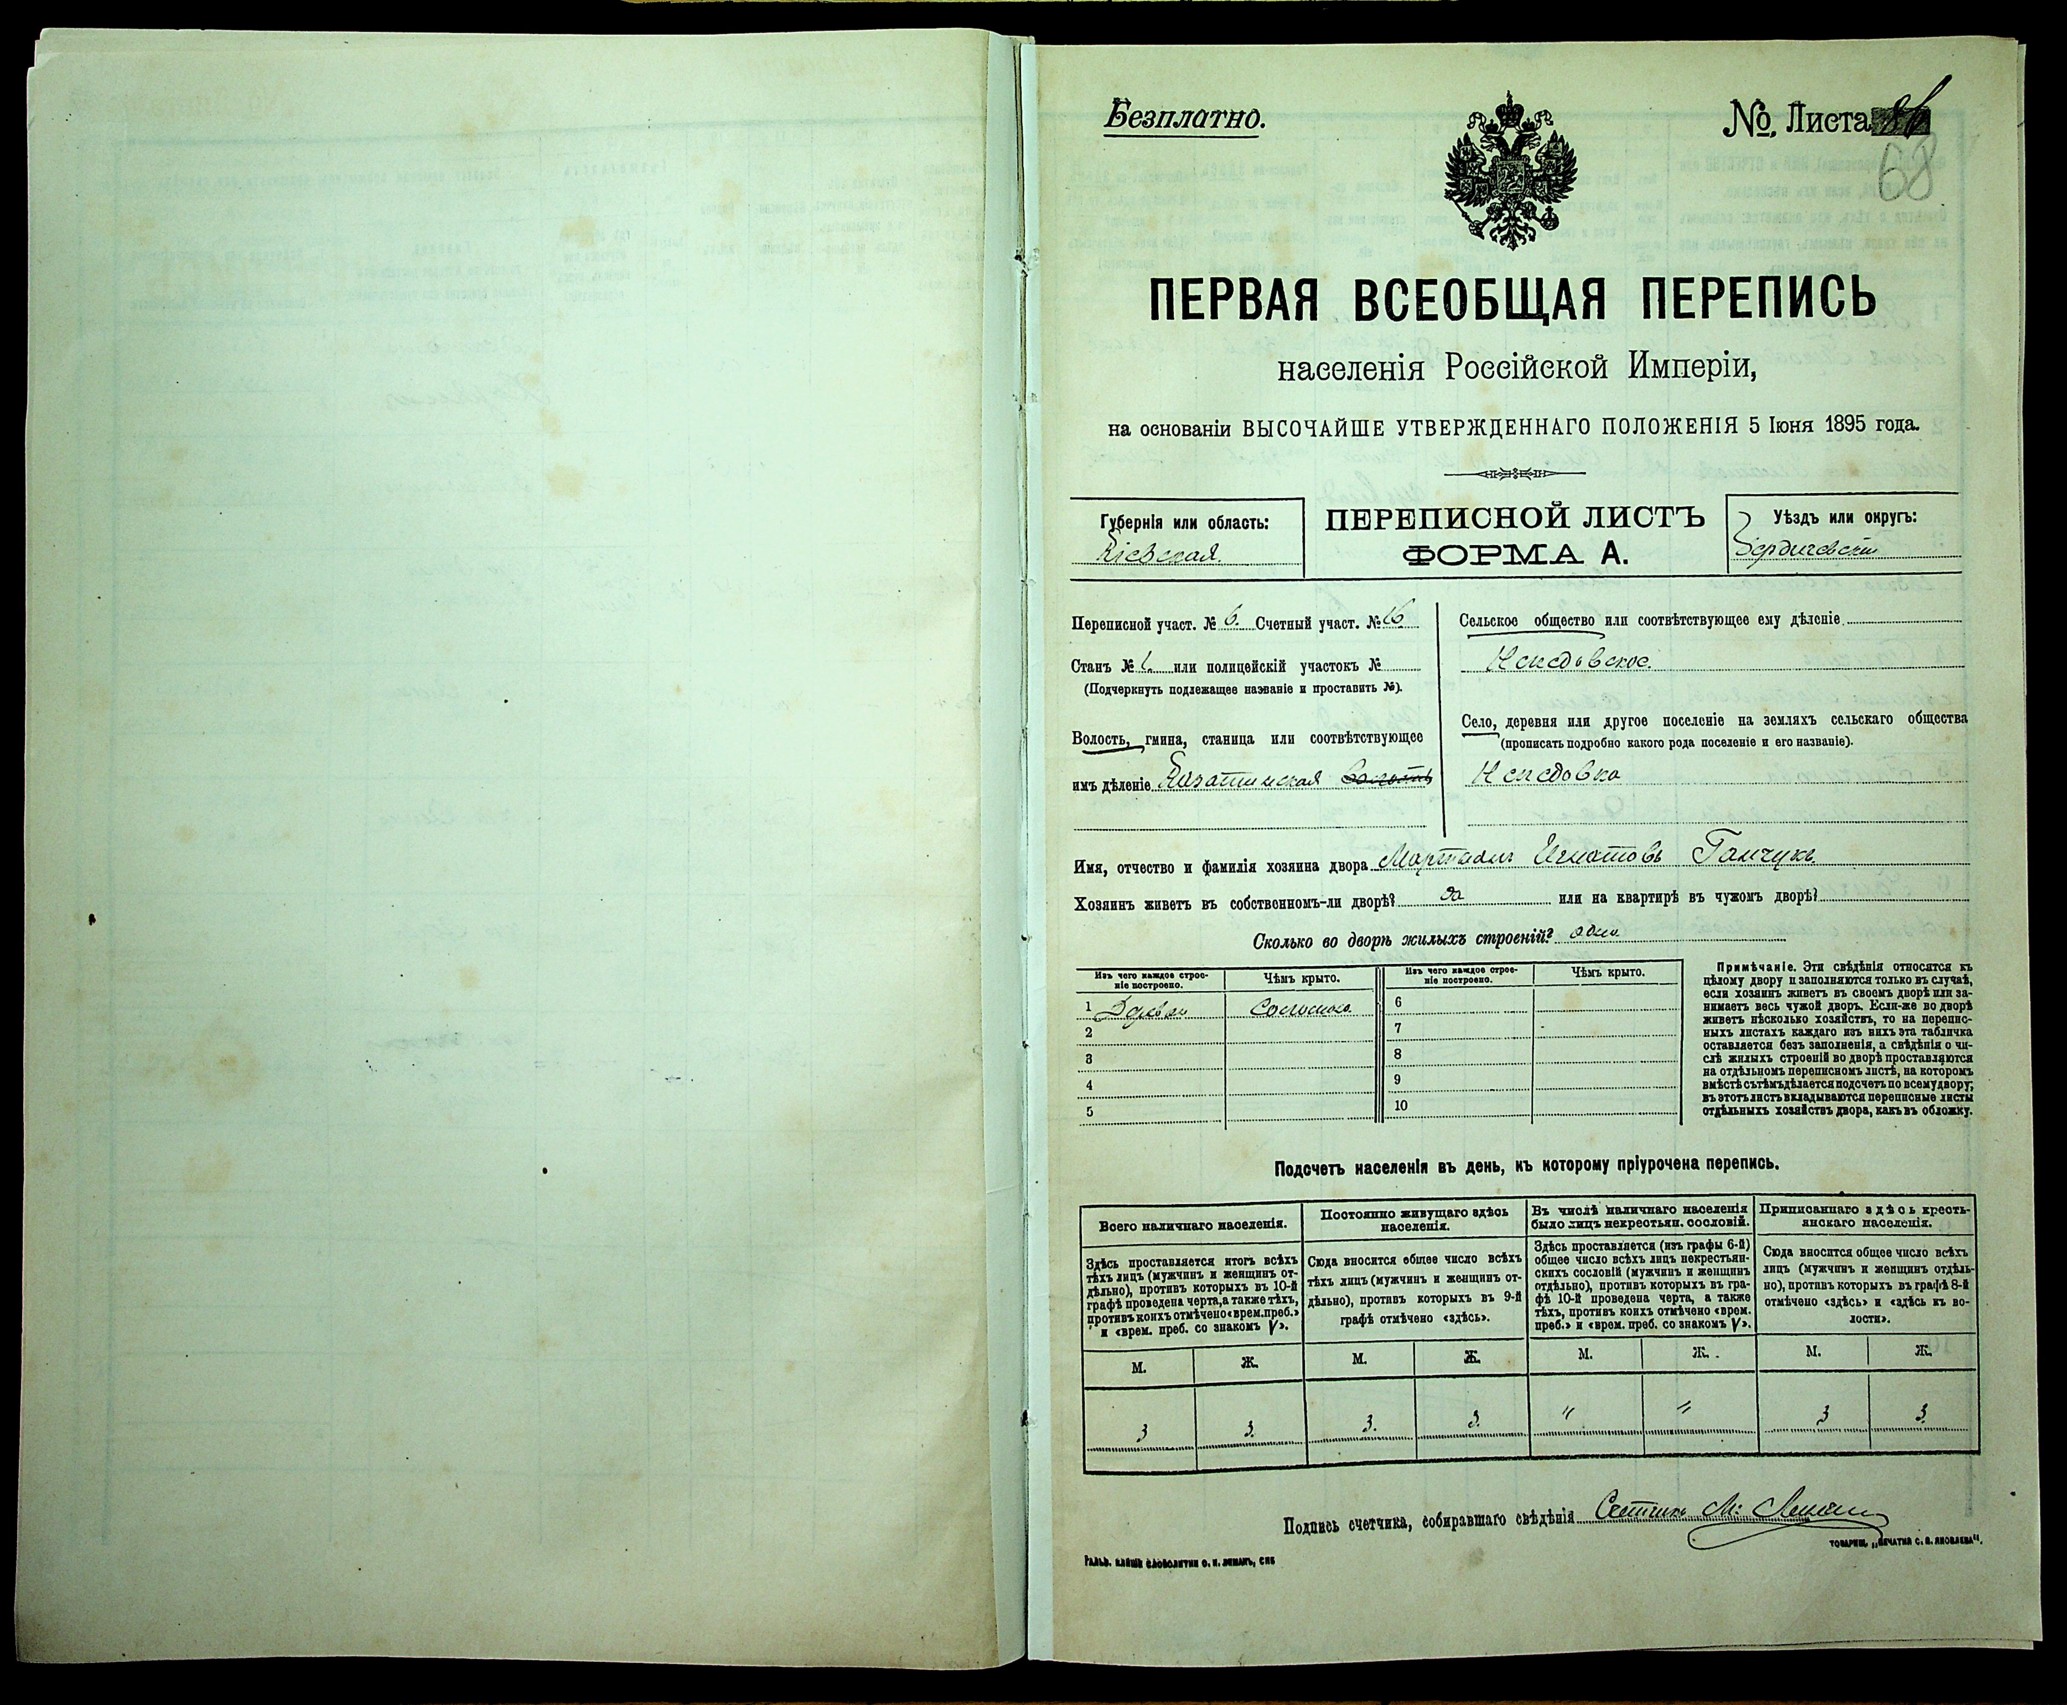 Безплатно.
№ Листа 86
68
ПЕРВАЯ ВСЕОБЩАЯ ПЕРЕПИСЬ
населенія Россійской Имперіи,
на основаніи ВЫСОЧАЙШЕ УТВЕРЖДЕННАГО ПОЛОЖЕНІЯ 5 Іюня 1895 года.
Губернія или область:
Кіевская.
ПЕРЕПИСНОЙ ЛИСТЪ
ФОРМА А.
Уѣздъ или округъ:
Бердичевскій
Переписной участ. № 6. Счетный участ. № 16
Станъ № 1. или полицейскій участокъ №
(Подчеркнуть подлежащее названіе и проставить №).
Волость, гмина, станица или соотвѣтствующее
имъ дѣленіе Казатинская волость
Сельское общество или соотвѣтствующее ему дѣленіе
Непедовское.
Село, деревня или другое поселеніе на земляхъ сельскаго общества
(прописать подробно какого рода поселеніе и его названіе).
Непедовка
Имя, отчество и фамилія хозяина двора Игнатовъ
Хозяинъ живетъ въ собственномъ-ли дворѣ? да или на квартирѣ въ чужомъ дворѣ?
Сколько во дворѣ жилыхъ строеній? одно
Изъ чего каждое строе-
ніе построено.
Чѣмъ крыто.
Изъ чего каждое строе-
ніе построено.
Чѣмъ крыто.
1 Соломою 6
2 7
3 8
4 9
5 10
Примѣчаніе. Эти свѣдѣнія относятся къ
цѣлому двору и заполняются только въ случаѣ,
если хозяинъ живетъ въ своемъ дворѣ или за-
нимаетъ весь чужой дворъ. Если-же во дворѣ
живетъ нѣсколько хозяйствъ, то на перепис-
ныхъ листахъ каждаго изъ нихъ эта табличка
оставляется безъ заполненія, а свѣдѣнія о чи-
слѣ жилыхъ строеній во дворѣ проставляются
на отдѣльномъ переписномъ листѣ, на которомъ
вмѣстѣ съ тѣмъ дѣлается подсчетъ по всему двору;
въ этотъ листъ вкладываются переписные листы
отдѣльныхъ хозяйствъ двора, какъ въ обложку.
Подсчетъ населенія въ день, къ которому пріурочена перепись.
Всего наличнаго населенія.
Здѣсь проставляется итогъ всѣхъ
тѣхъ лицъ (мужчинъ и женщинъ от-
дѣльно), противъ которыхъ въ 10-й
графѣ проведена черта, а также тѣхъ,
противъ коихъ отмѣчено «врем. преб.»
и «врем. преб. со знакомъ V».
Постоянно живущаго здѣсь
населенія.
Сюда вносится общее число всѣхъ
тѣхъ лицъ (мужчинъ и женщинъ от-
дѣльно), противъ которыхъ въ 9-й
графѣ отмѣчено «здѣсь».
Въ числѣ наличнаго населенія
было лицъ некрестьян. сословій.
Здѣсь проставляется (изъ графы 6-й)
общее число всѣхъ лицъ некрестьян-
скихъ сословій (мужчинъ и женщинъ
отдѣльно), противъ которыхъ въ гра-
фѣ 10-й проведена черта, а также
тѣхъ, противъ коихъ отмѣчено «врем.
преб.» и «врем. преб. со знакомъ V».
Приписаннаго здѣсь кресть-
янскаго населенія.
Сюда вносится общее число всѣхъ
лицъ (мужчинъ и женщинъ отдѣль-
но), противъ которыхъ въ графѣ 8-й
отмѣчено «здѣсь» и «здѣсь къ во-
лости».
М. Ж. М. Ж. М. Ж. М. Ж.
3 3. 3. 3. " " 3 3.
Подпись счетчика, собиравшаго свѣдѣнія
ТОВАРИЩ. „ПЕЧАТНЯ С. П. ЯКОВЛЕВА".